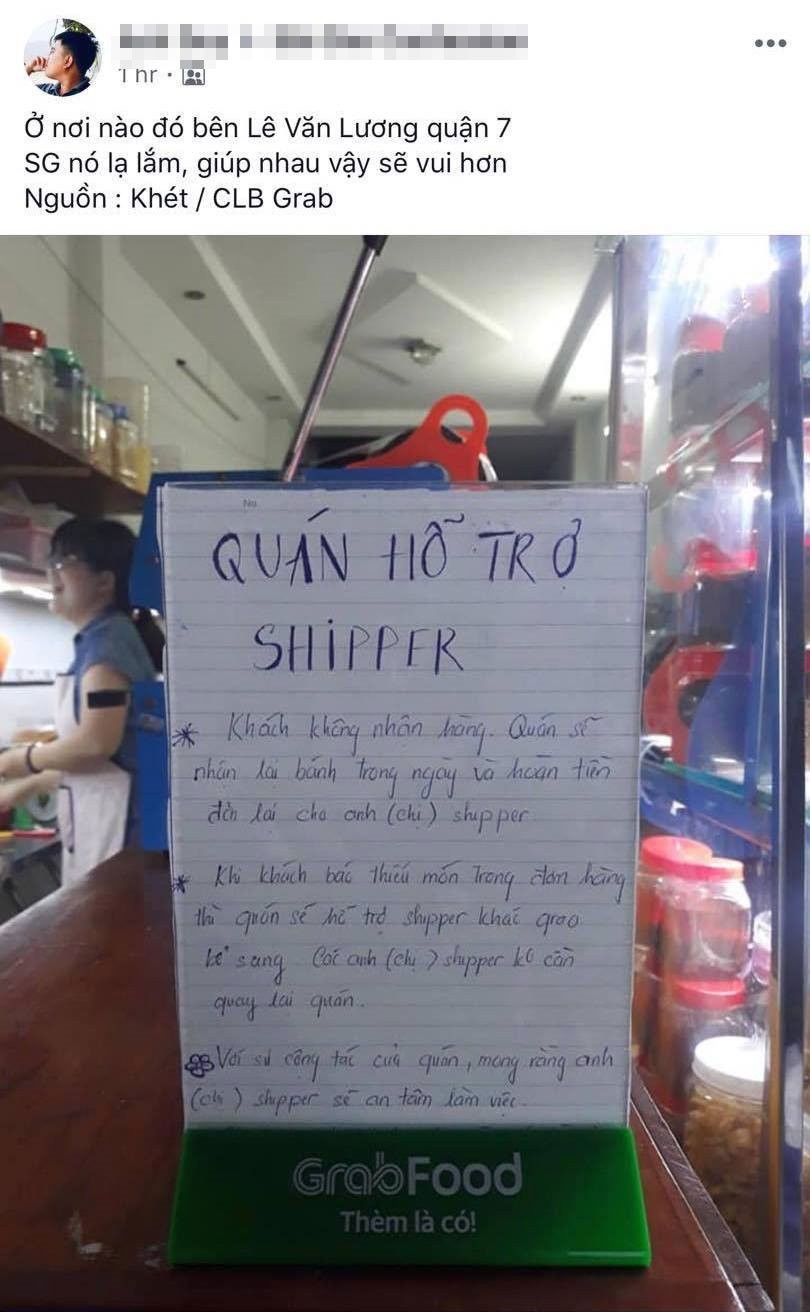 1 hr ·
Ở nơi nào đó bên Lê Văn Lương quận 7
SG nó lạ lắm, giúp nhau vậy sẽ vui hơn
Nguồn : Khét / CLB Grab
No.
QUÁN HỖ TRỢ
SHIPPER
* Khách không nhận hàng. Quán sẽ
nhận lại bánh trong ngày và hoàn tiền
đơn lại cho anh (chị) shipper
* Khi khách báo thiếu món trong đơn hàng
thì quán sẽ hỗ trợ shipper khác giao
bổ sung. Các anh (chị) shipper ko cần
quay lại quán.
Với sự cộng tác của quán, mong rằng anh
(chị) shipper sẽ an tâm làm việc.
GrabFood
Thèm là có!